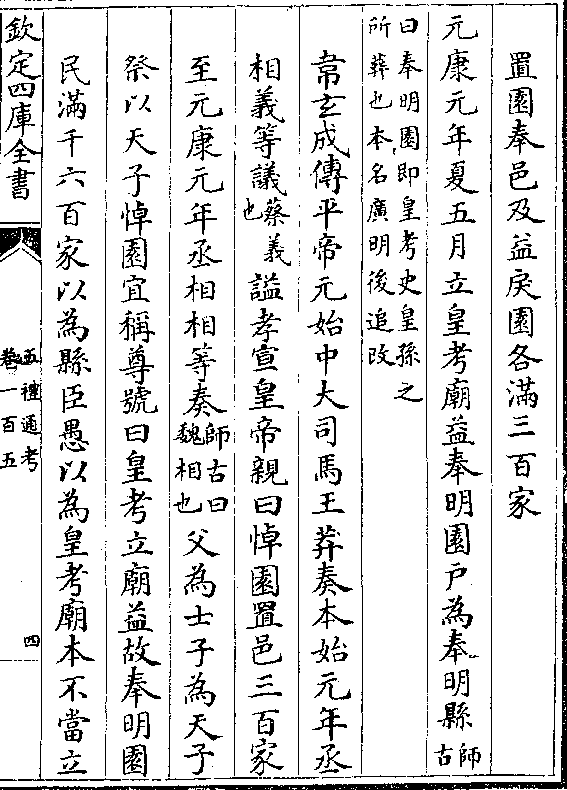 置園奉邑及益戾園各滿三百家
元康元年夏五月立皇考廟益奉明園戶為奉明縣師古
曰奉明園即皇考史皇孫之
所葬也本名廣明後追改
韋玄成傳平帝元始中大司馬王莽奏本始元年丞
相義等議蔡義也諡孝宣皇帝親曰悼園置邑三百家
至元康元年丞相相等奏師古曰魏相也父為士子為天子
祭以天子悼園宜稱尊號曰皇考立廟益故奉明園
民滿千六百家以為縣臣愚以為皇考廟本不當立
欽定四庫全書
五禮通考
卷一百五
四